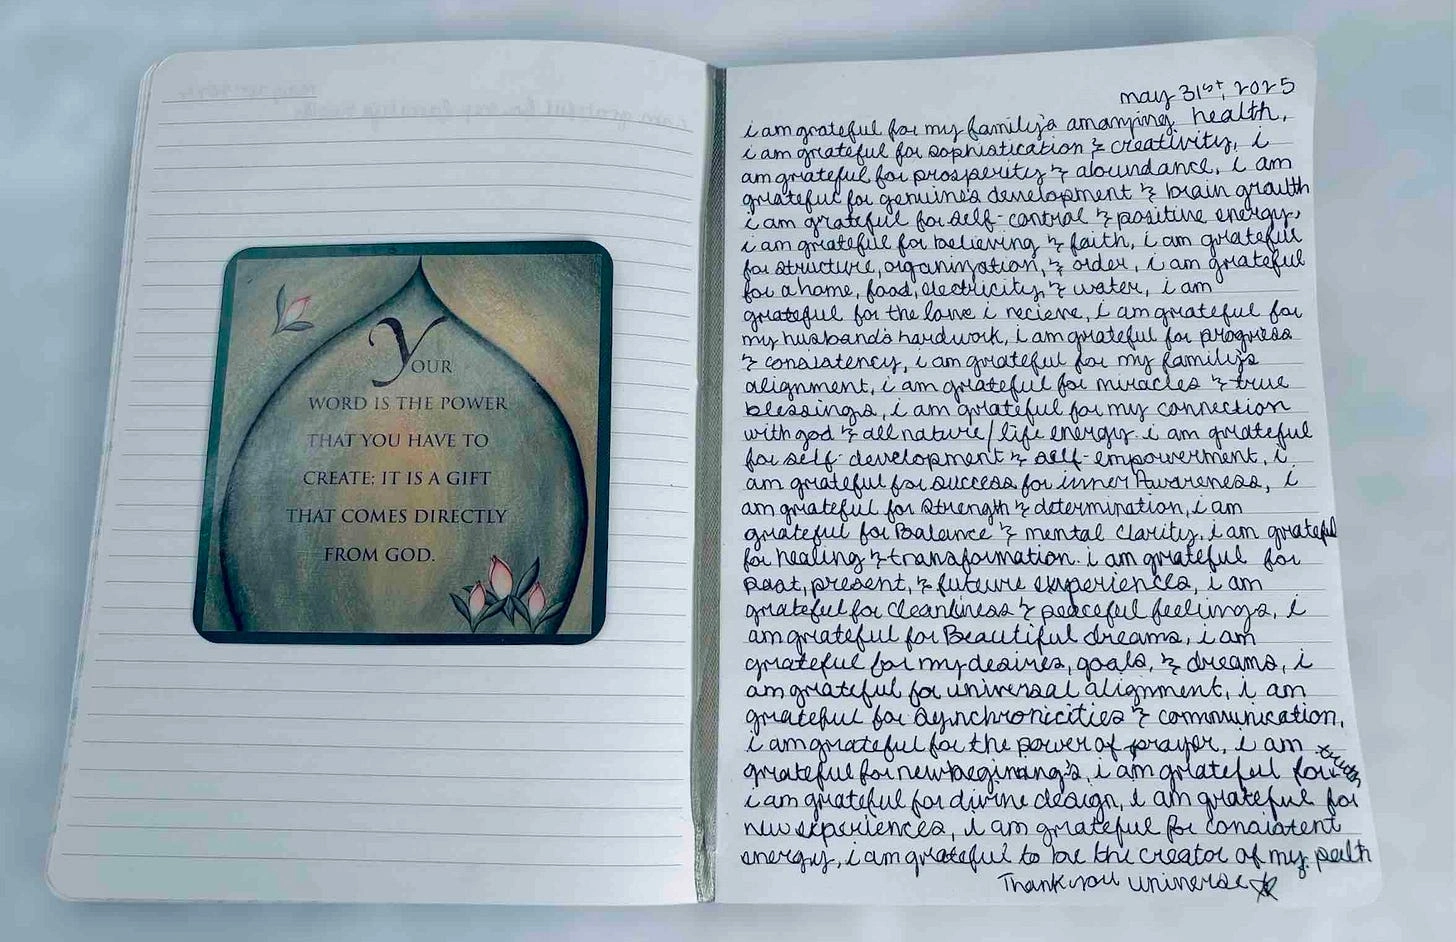 YOUR
WORD IS THE POWER
THAT YOU HAVE TO
CREATE; IT IS A GIFT
THAT COMES DIRECTLY
FROM GOD.
may 31st, 2025
i am grateful for my family's amazing health,
i am grateful for sophistication & creativity, i
am grateful for prosperity & abundance, i am
grateful for genuine's development & brain growth
i am grateful for self-control & positive energy,
i am grateful for believing & faith, i am grateful
for structure, organization, & order, i am grateful
for a home, food, electricity, & water, i am
grateful for the love i recieve, i am grateful for
my husband's hardwork, i am grateful for progress
& consistency, i am grateful for my family's
alignment, i am grateful for miracles & true
blessings, i am grateful for my connection
with god & all nature/life energy. i am grateful
for self-development & self-empowerment, i
am grateful for success for inner Awareness, i
am grateful for strength & determination, i am
grateful for Balance & mental clarity, i am grateful
for healing & transformation. i am grateful for
past, present, & future experiences, i am
grateful for cleanliness & peaceful feelings, i
am grateful for Beautiful dreams, i am
grateful for my desires, goals, & dreams, i
am grateful for universal alignment, i am
grateful for synchronicities & communication,
i am grateful for the power of prayer, i am
grateful for new beginning's, i am grateful for truth
i am grateful for divine design, i am grateful for
new experiences, i am grateful for consistent
energy, i am grateful to be the creator of my path
Thank you universe